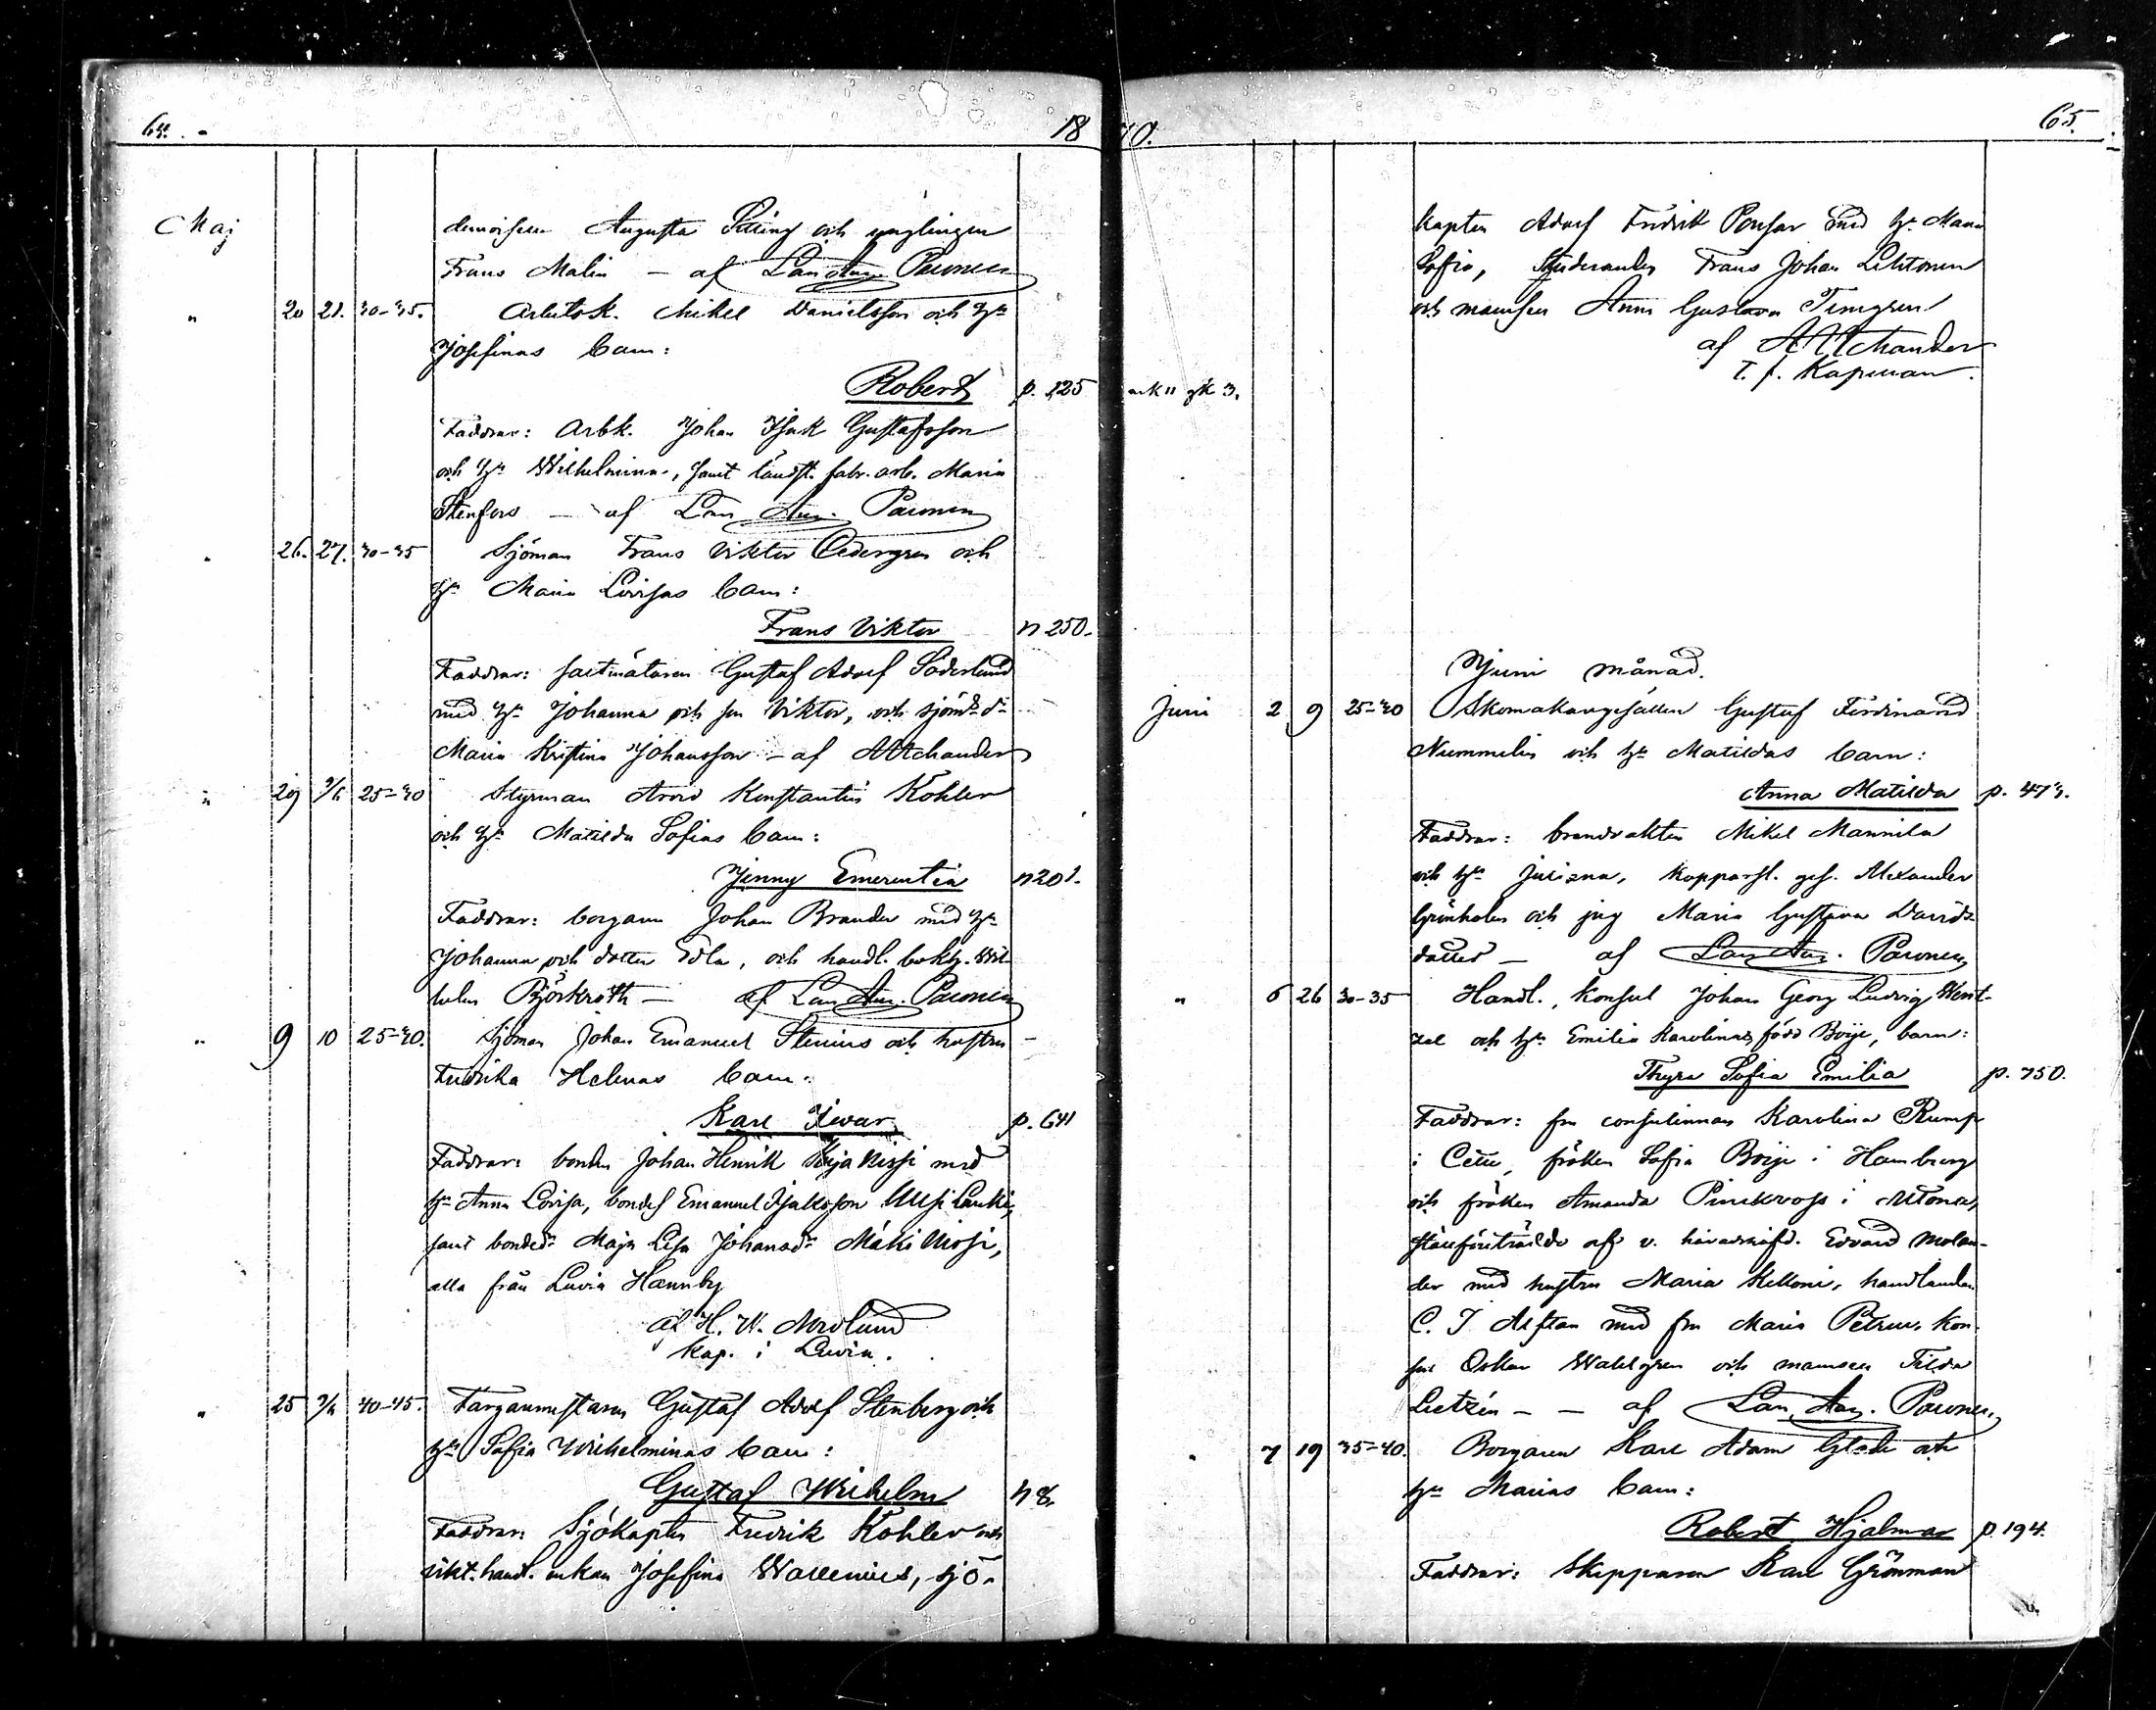 64.
18
Maj
demoisellen Augusta och ynglingen
Frans Malin — af Lars Aug. Paronen
" 20 21. 30-35. Arbetsk. Mikel Danielsson och h:u
Josefinas barn:
Robert p. 125
Faddrar: Arbk. Johan Isak Gustafsson
och h:u Wilhelmina, samt fabr. arb. Maria
Stenfors — af Lars Aug. Paronen
" 26. 27. 30-35 Sjöman Frans Viktor Cedergren och
h:u Maria Lovisas barn:
Frans Viktor n 250.
Faddrar: Gustaf Adolf Söderlund
med h:u Johanna och son Viktor, och sjöm:s d:r
Maria Kristina Johansson — af
" 29 25-30 Styrman Arvid Konstantin Köhler
och h:u Matilda Sofias barn:
Jenny Emerentia n 201.
Faddrar: borgaren Johan Brander med h:u
Johanna och dotter Edla, och handl. bokh. Wil-
helm Björkroth — af Lars Aug. Paronen
" 9 10 25-30. Sjöman Johan Emanuel Stenius och hustru
Fredrika Helenas barn:
Karl Iwar p. 641
Faddrar: bonden Johan Henrik med
h:u Anna Lovisa, bondes. Emanuel Isaksson
samt bonded:r Maja Lisa Johansd:r Mäki
alla från Luvia Hannby
af H. W. Nordlund
Kap. i Luvia.
" 25 40-45. Färgaremästaren Gustaf Adolf Stenberg och
h:u Sofia Wilhelminas barn:
Gustaf Wilhelm n 8.
Faddrar: Sjökapten Fredrik Köhler och
vikt. handl. enkan Josefina Wallenius, sjö-
70.
65.
kapten Adolf Fredrik Ponsar med h:u Maria
Sofia, Studeranden Frans Johan Lehtonen
och mamsell Anna Gustava Timgren
af
T. f. Kapellan.
ark 11 gk 3.
Juni månad.
Juni 2 9 25-30 Skomakaregesällen Gustaf Ferdinand
Nummelin och h:u Matildas barn:
Anna Matilda p. 473.
Faddrar: brandvakten Mikel Mannila
och h:u Juliana, kopparsl. ges. Alexander
Grönholm och pig Maria Gustava Davids-
dotter — af Lars Aug. Paronen
" 6 26 30-35 Handl., konsul Johan Georg Ludvig Went-
zel och h:u Emilia Karolinas, född Boije, barn:
Thyra Sofia Emilia p. 750.
Faddrar: fru consulinnan Karolina Rump
i Cette, fröken Sofia Boije i Hamburg
och fröken Amanda i Altona,
ställföreträdde af v. häradshöfd. Edvard Molan-
der med hustru Maria Helleni, handlanden
C. J. Alftan med fru Maria Petrea, kon-
sul Oskar Wahlgren och mamsell Tilda
Lietzén — — af Lars Aug. Paronen.
" 7 19 35-40. Borgaren Karl Adam och
h:u Marias barn:
Robert Hjalmar p. 194.
Faddrar: Skepparen Karl Grönman